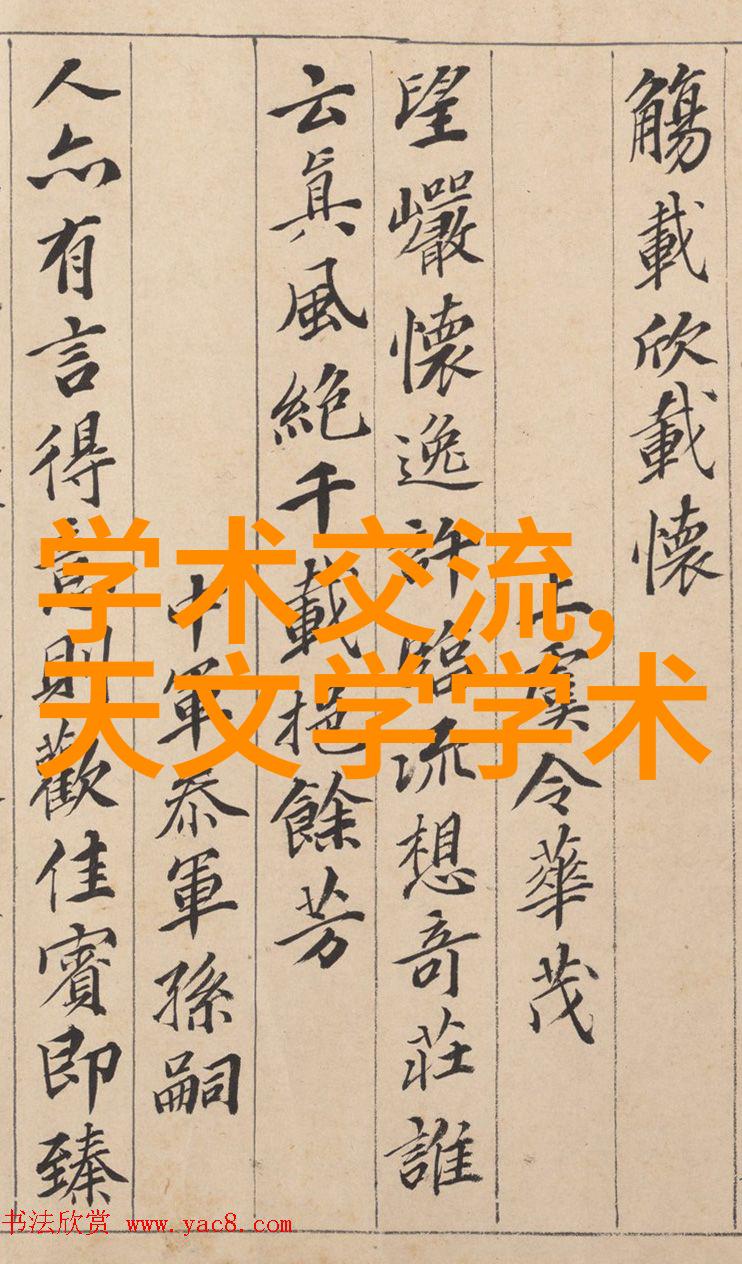 觴載欣載懷
上虞令華茂
望巖懷逸許臨流想奇莊誰
云眞風絕千載挹餘芳
中軍參軍孫嗣
人亦有言得意則歡佳賓即臻
学术交流,
天文学学术
书法欣赏 www.yac8.com